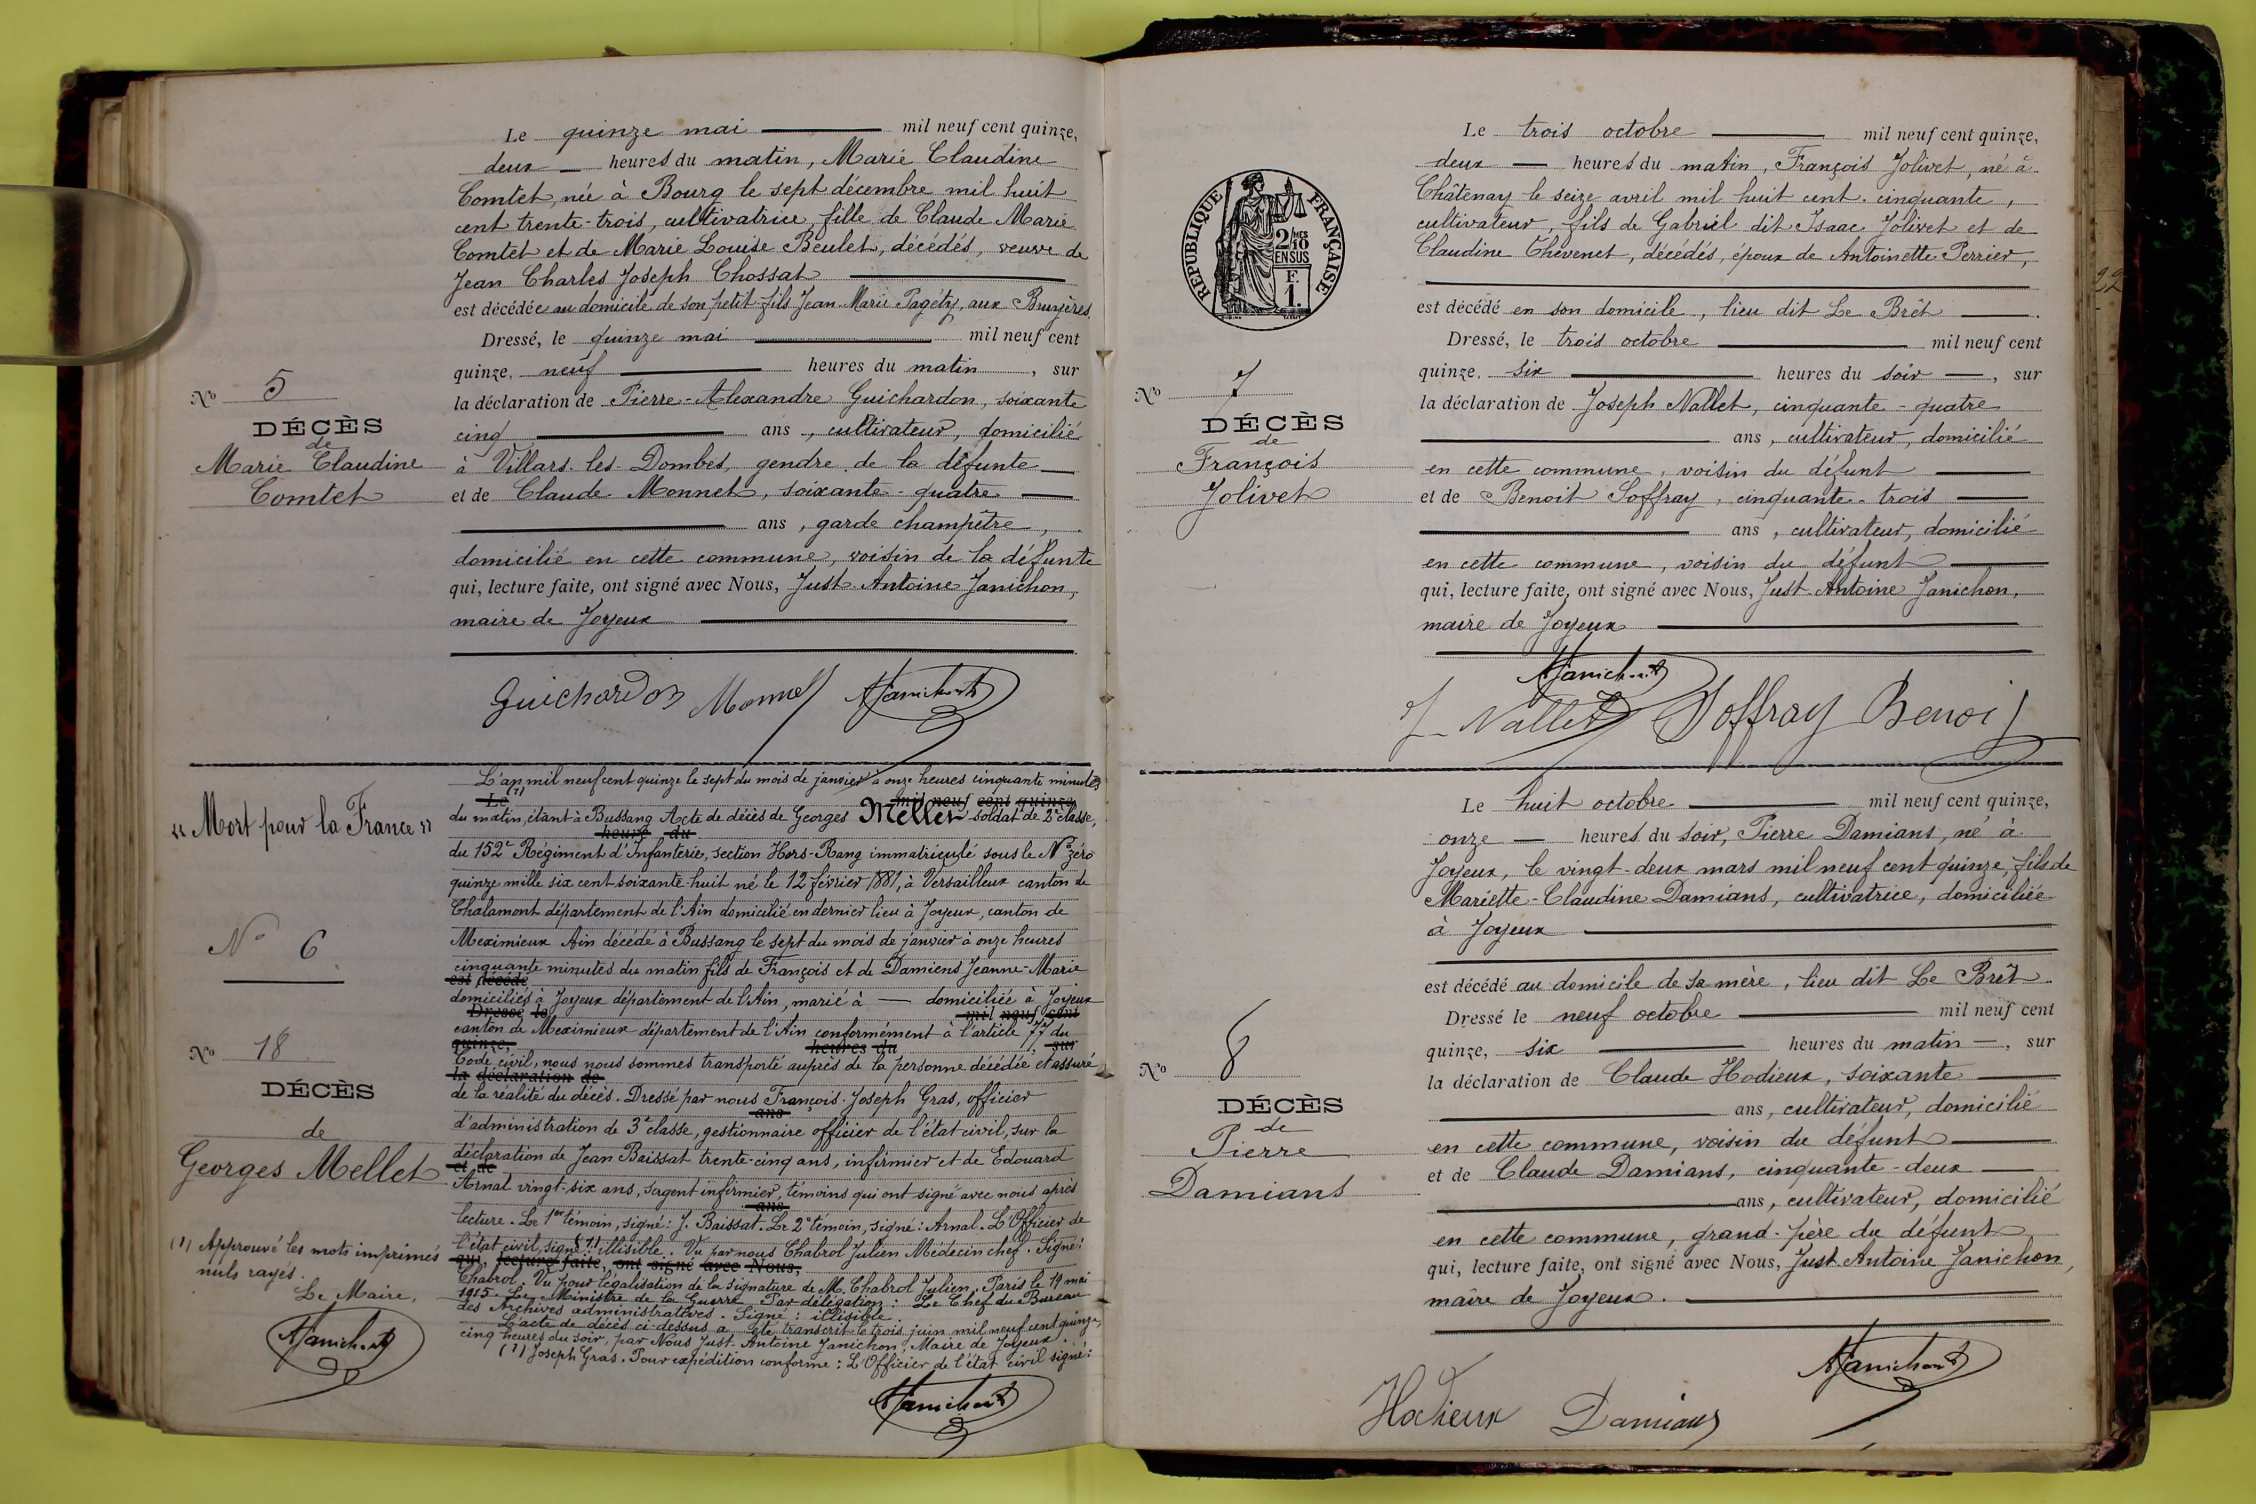 Le quinze mai mil neuf cent quinze,
deux heures du matin, Marie Claudine
Comtet, née à Bourg le sept décembre mil huit
cent trente-trois, cultivatrice, fille de Claude Marie
Comtet et de Marie Louise Beulet, décédés, veuve de
Jean Charles Joseph Chossat
est décédée au domicile de son petit-fils Jean-Marie Pagéty, aux Bruyères.
Dressé, le quinze mai mil neuf cent
quinze, neuf heures du matin, sur
la déclaration de Pierre-Alexandre Guichardon, soixante
cinq ans, cultivateur, domicilié
à Villars-les-Dombes, gendre de la défunte
et de Claude Monnet, soixante-quatre
ans, garde champêtre,
domicilié en cette commune, voisin de la défunte
qui, lecture faite, ont signé avec Nous, Just-Antoine Janichon,
maire de Joyeux
No 5
DÉCÈS
de
Marie Claudine
Comtet
Guichardon Monnet AJanichon
L'an mil neuf cent quinze le sept du mois de janvier à onze heures cinquante minutes
Le (1) mil neuf cent quinze,
du matin, étant à Bussang Acte de décès de Georges Mellet soldat de 2e classe,
heure du
du 152e Régiment d'Infanterie, section Hors-Rang immatriculé sous le No zéro
quinze mille six cent soixante-huit né le 12 février 1881, à Versailleux canton de
Chalamont département de l'Ain domicilié en dernier lieu à Joyeux, canton de
Meximieux Ain décédé à Bussang le sept du mois de janvier à onze heures
cinquante minutes du matin fils de François et de Damiens Jeanne-Marie
est décédé
domiciliés à Joyeux département de l'Ain, marié à — domiciliée à Joyeux
Dressé le mil neuf cent
canton de Meximieux département de l'Ain conformément à l'article 77 du
quinze, heures du sur
Code civil, nous nous sommes transporté auprès de la personne décédée et assuré
la déclaration de
de la réalité du décès. Dressé par nous François-Joseph Gras, officier
ans
d'administration de 3e classe, gestionnaire officier de l'état civil, sur la
déclaration de Jean Baissat trente-cinq ans, infirmier et de Edouard
et de
Arnal vingt-six ans, sergent infirmier, témoins qui ont signé avec nous après
ans
lecture. Le 1er témoin, signé: J. Baissat. Le 2e témoin, signé: Arnal. L'Officier de
l'état civil, signé (1) illisible. Vu par nous Chabrol Julien Médecin chef. Signé:
qui, lecture faite, ont signé avec Nous,
Chabrol. Vu pour légalisation de la signature de M. Chabrol Julien. Paris le 19 mai
1915. Le Ministre de la Guerre Par délégation: Le Chef du Bureau
des Archives administratives. Signé: illisible.
L'acte de décès ci-dessus a été transcrit le trois juin mil neuf cent quinze,
cinq heures du soir, par Nous Just-Antoine Janichon, Maire de Joyeux.
(1) Joseph Gras. Pour expédition conforme: L'Officier de l'état civil signé:
AJanichon
« Mort pour la France »
No 6
No 18
DÉCÈS
de
Georges Mellet
(1) Approuvé les mots imprimés
nuls rayés.
Le Maire,
AJanichon
RÉPUBLIQUE FRANÇAISE
2/10MES
EN SUS
F.
1.
Le trois octobre mil neuf cent quinze,
deux heures du matin, François Jolivet, né à
Châtenay le seize avril mil huit cent cinquante,
cultivateur, fils de Gabriel dit Isaac Jolivet et de
Claudine Thévenet, décédés, époux de Antoinette Perrier,
est décédé en son domicile, lieu dit Le Brêt.
Dressé, le trois octobre mil neuf cent
quinze, six heures du soir, sur
la déclaration de Joseph Nallet, cinquante-quatre
ans, cultivateur, domicilié
en cette commune, voisin du défunt
et de Benoit Soffray, cinquante-trois
ans, cultivateur, domicilié
en cette commune, voisin du défunt
qui, lecture faite, ont signé avec Nous, Just-Antoine Janichon,
maire de Joyeux
No 7
DÉCÈS
de
François
Jolivet
AJanichon
J Nallet Soffray Benoit
Le huit octobre mil neuf cent quinze,
onze heures du soir, Pierre Damians, né à
Joyeux, le vingt-deux mars mil neuf cent quinze, fils de
Mariette-Claudine Damians, cultivatrice, domiciliée
à Joyeux
est décédé au domicile de sa mère, lieu dit Le Brêt.
Dressé le neuf octobre mil neuf cent
quinze, six heures du matin, sur
la déclaration de Claude Hodieux, soixante
ans, cultivateur, domicilié
en cette commune, voisin du défunt
et de Claude Damians, cinquante-deux
ans, cultivateur, domicilié
en cette commune, grand-père du défunt
qui, lecture faite, ont signé avec Nous, Just-Antoine Janichon,
maire de Joyeux.
No 8
DÉCÈS
de
Pierre
Damians
AJanichon
Hodieux Damians
22